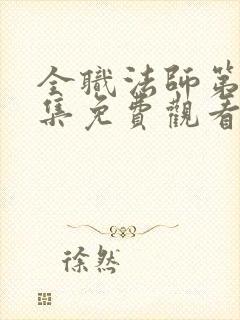 全職法師第
集免費觀看
徐然